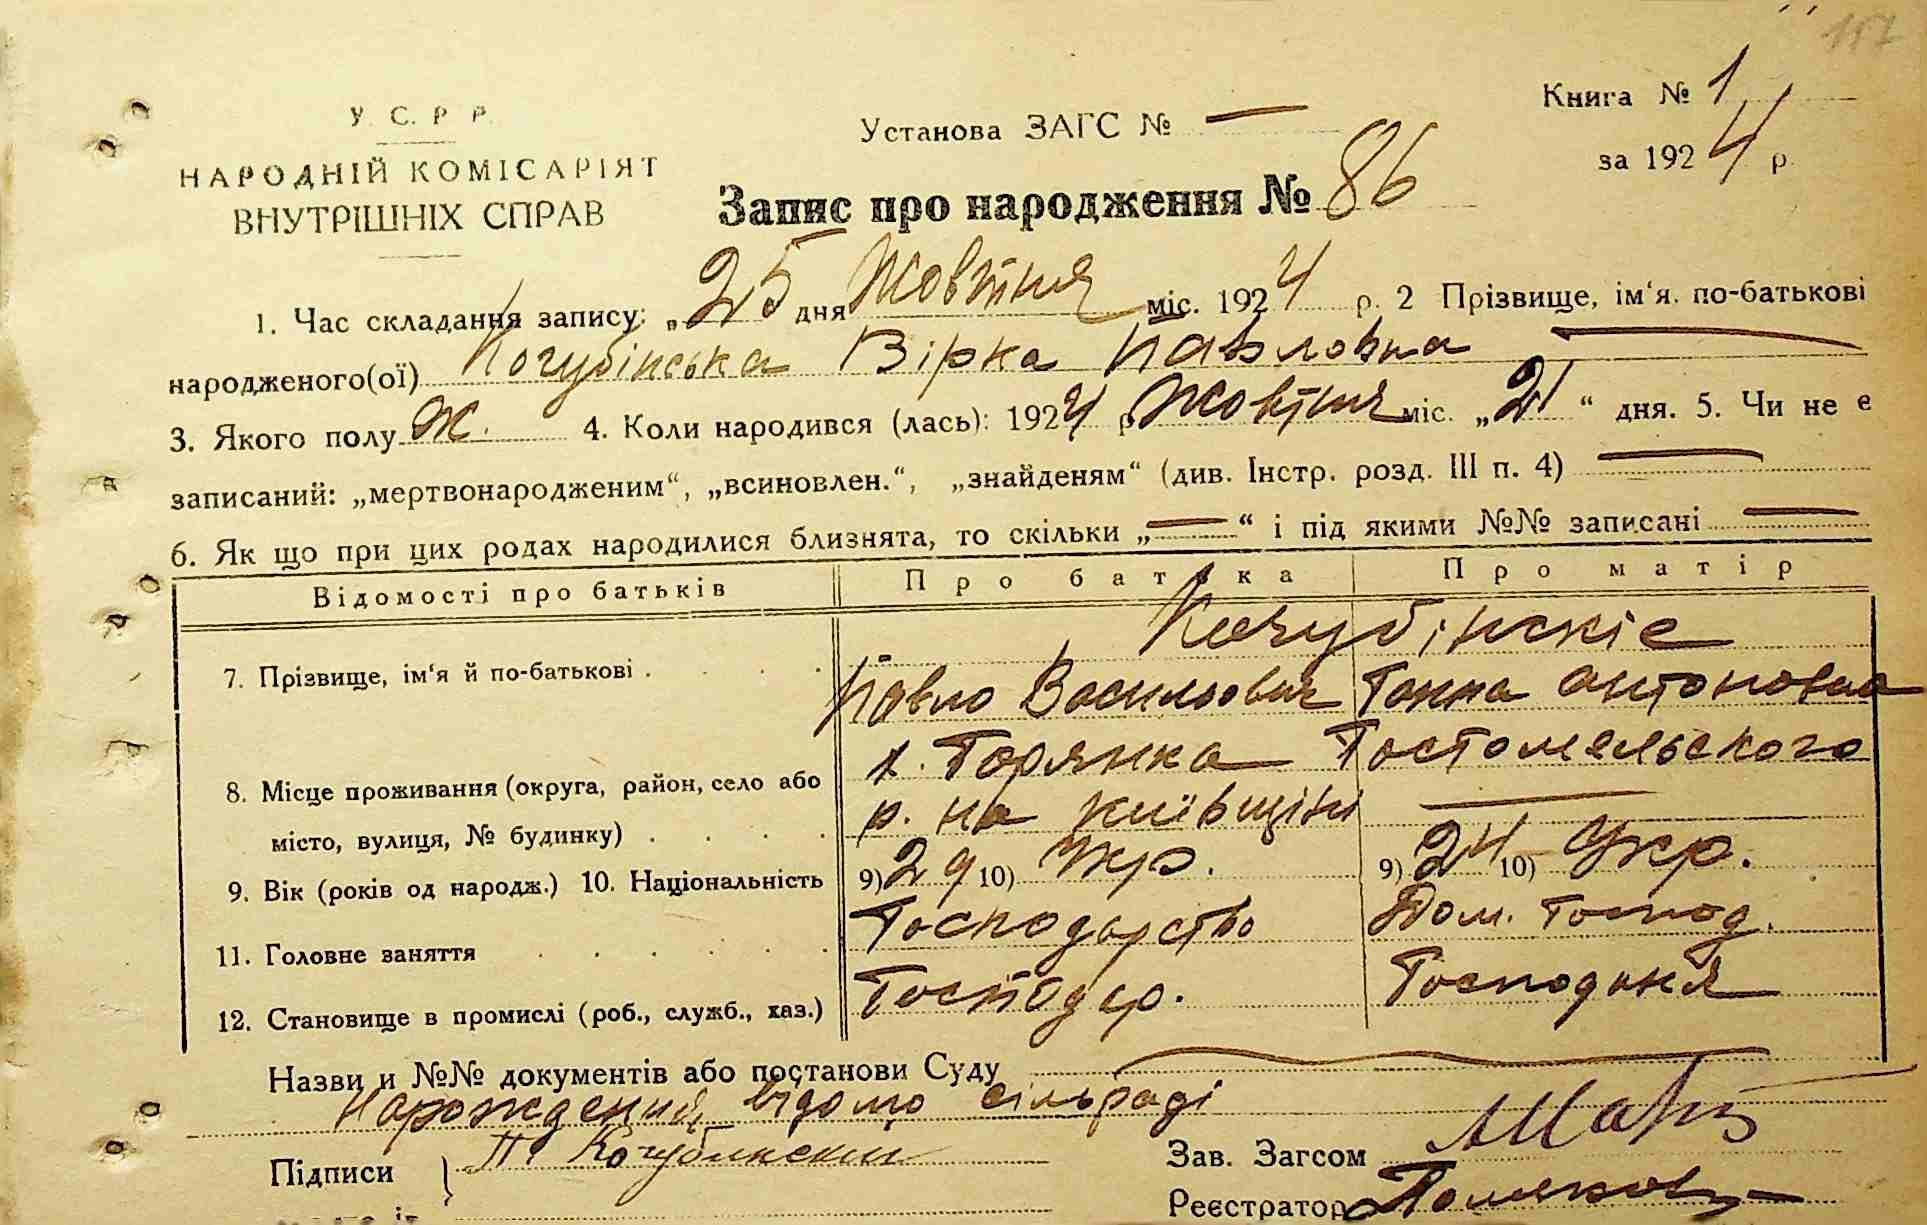 117
У. С. Р. Р.
НАРОДНІЙ КОМІСАРІЯТ
ВНУТРІШНІХ СПРАВ
Установа ЗАГС № —
Книга № 1
за 1924 р.
Запис про народження № 86
1. Час складання запису: „25 дня Жовтня міс. 1924 р. 2 Прізвище, ім‘я. по-батькові
народженого(ої) Кочубінська Вірка Павловна —
3. Якого полу Ж. 4. Коли народився (лась): 1924 р Жовтня міс. „21“ дня. 5. Чи не є
записаний: „мертвонародженим“, „всиновлен.“, „знайденям“ (див. Інстр. розд. III п. 4) —
6. Як що при цих родах народилися близнята, то скільки „—“ і під якими №№ записані —
Відомості про батьків Про батька Про матір
Кочубінскіе
7. Прізвище, ім‘я й по-батькові . Павло Васильович Ганна Антоновна
х. Горянка Гостомельського
8. Місце проживання (округа, район, село або
місто, вулиця, № будинку) р. на Київщіні —
9. Вік (років од народж.) 10. Національність 9) 29 10) Укр. 9) 24 10) Укр.
11. Головне заняття Господарство Дом. Господ.
12. Становище в промислі (роб., служб., хаз.) Господар. Господиня
Назви и №№ документів або постанови Суду
Нарождений відомо сільраді
Підписи П. Кочубинский
Зав. Загсом
Реєстратор